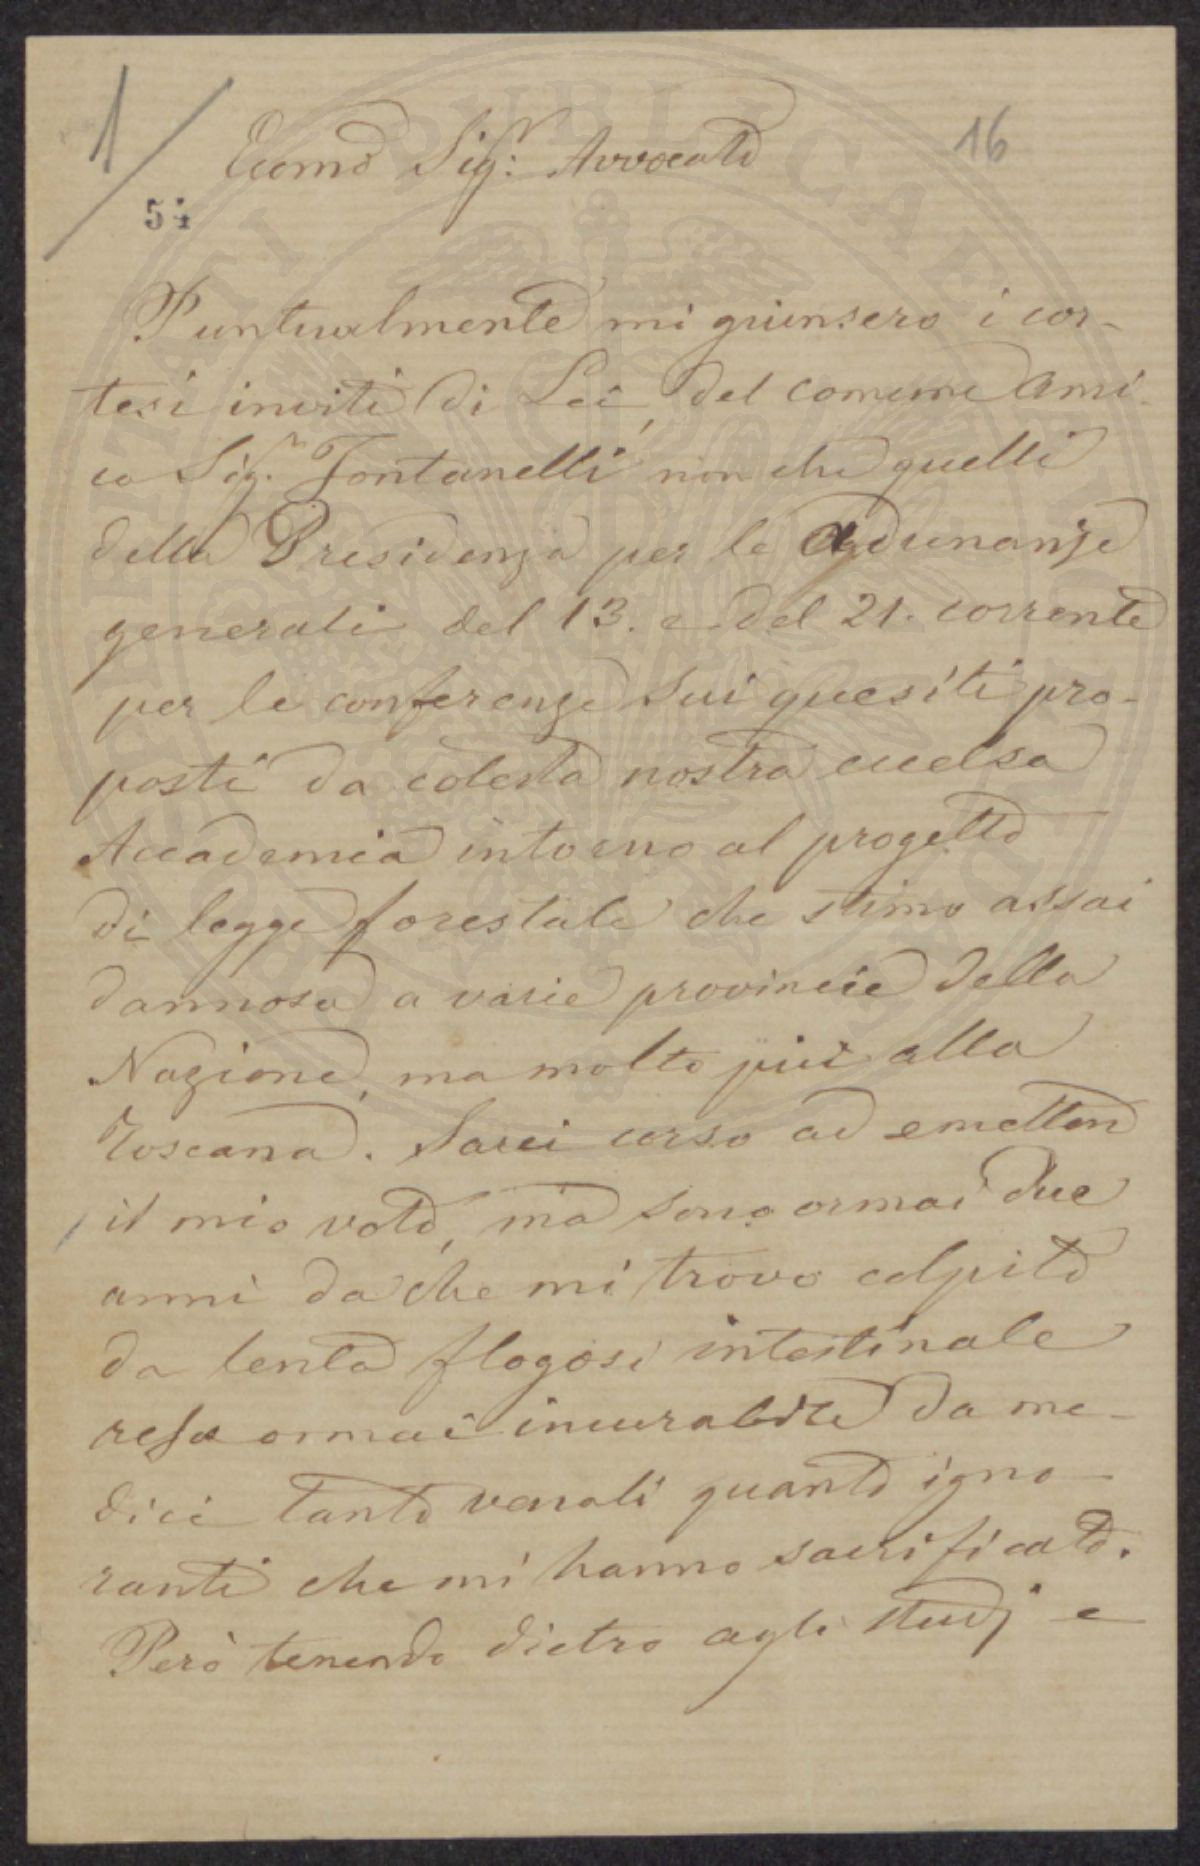 1/
16
54
Ecc.mo Sig.r Avvocato
Puntualmente mi giunsero i cor-
tesi inviti di Lei, del comune Ami-
co Sig.r Fontanelli non che quelli
della Presidenza per le adunanze
generali del 13. e del 21. corrente
per le conferenze sui quesiti pro-
posti da codesta nostra eccelsa
Accademia intorno al progetto
di legge forestale che stimo assai
dannosa a varie provincie della
Nazione, ma molto più alla
Toscana. Sarei corso ad emetter
il mio voto, ma sono ormai due
anni da che mi trovo colpito
da lenta flogosi intestinale
resa ormai incurabile da me-
dici tanto venali quanto igno-
ranti che mi hanno sacrificato.
Però tenendo dietro agli studj e